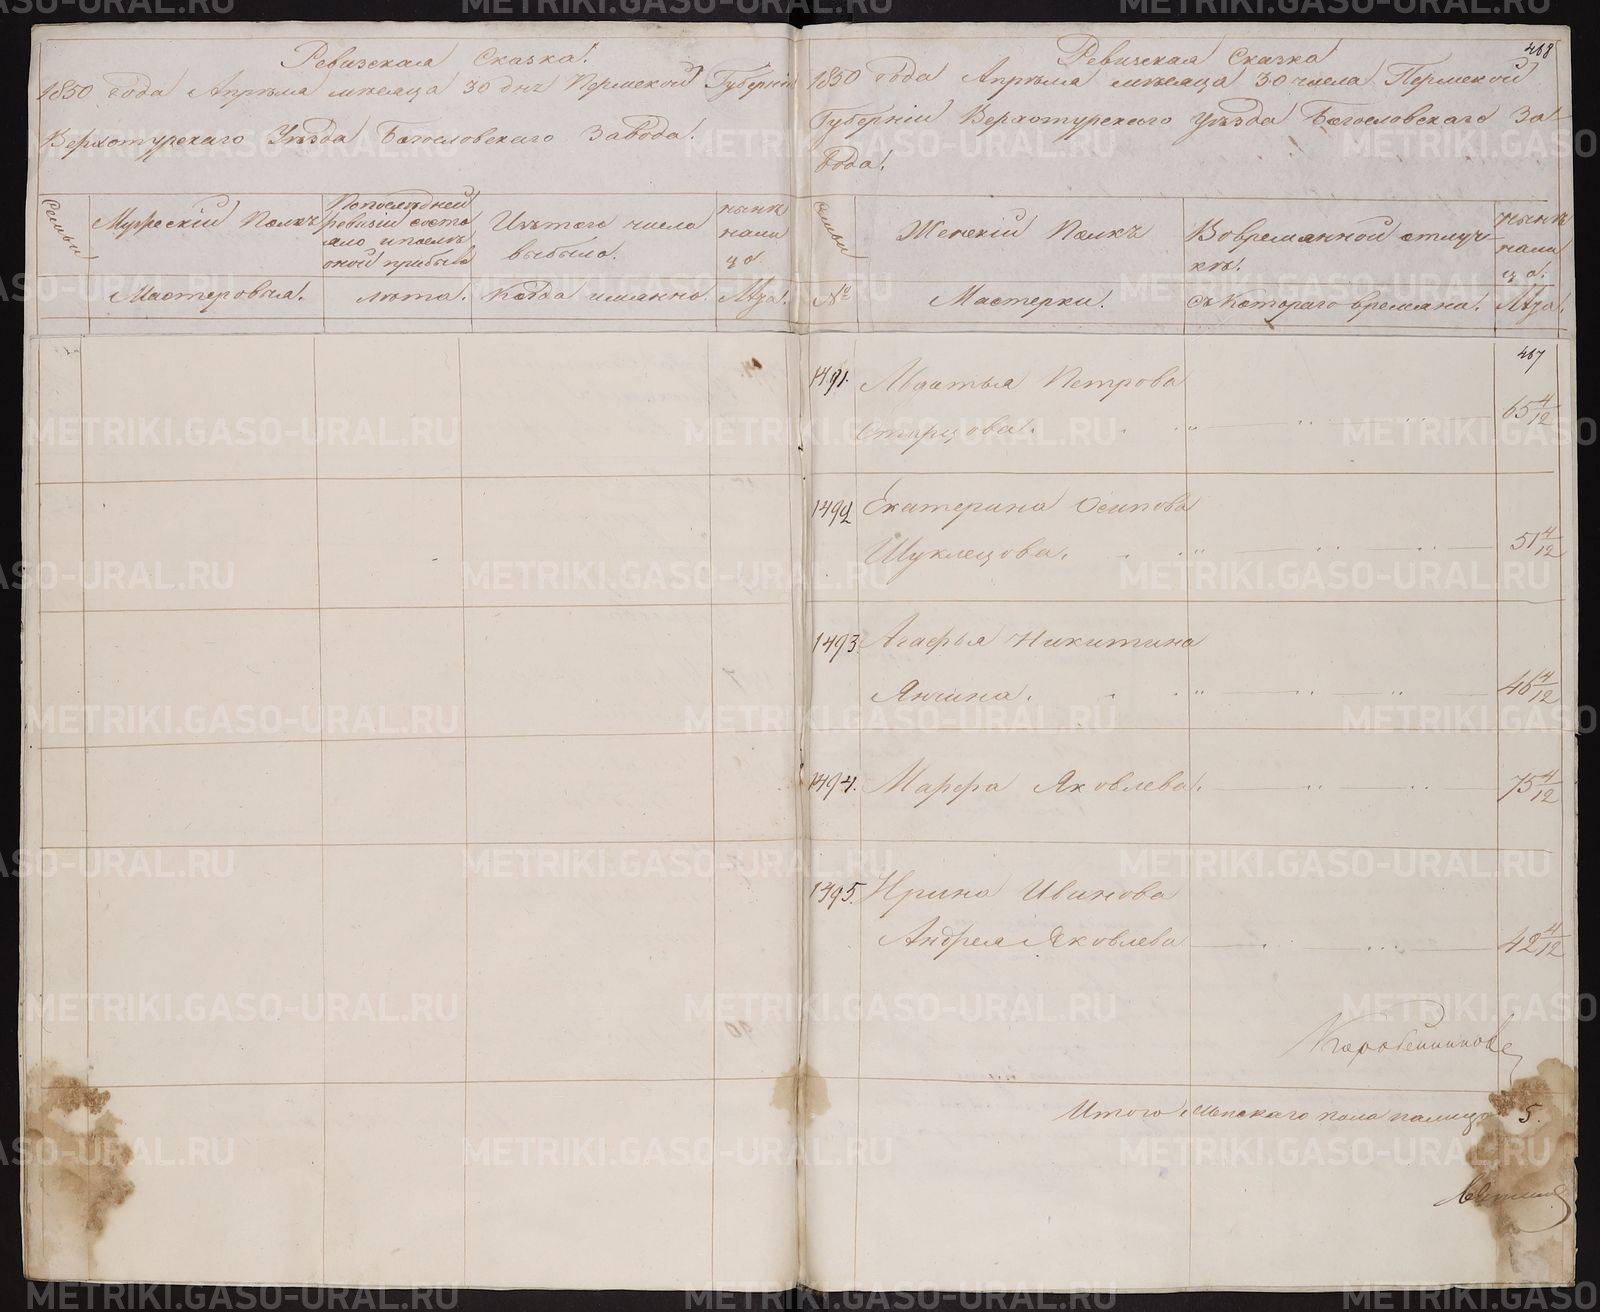 Ревизская Сказка.
1850 года Апреля месяца 30 дня Пермской Губернии
Верхотурскаго Уезда Богословскаго Завода.
Семьи
Мужескій Полъ
По последней
ревизіи состо
яло и после
оной прибыло
Изъ того числа
выбыло.
ныне
нали
цо
Мастеровыя.
лета.
Когда имянно.
Лета.
468
Ревизская Сказка
1850 года Апреля месяца 30 числа Пермской
Губерніи Верхотурскаго Уезда Богословскаго За
вода.
Семьи
Женскій Полъ
Во временной отлуч-
ке.
ныне
нали
цо.
№
Мастерки.
съ Котораго времяна.
Лета.
467
1491. Авдотья Петрова
Старцова. 65 4/12
1492 Екатерина Осипова
Шуклецова. 51 4/12
1493. Агафья Никитина
Янчина. 46 4/12
1494. Марфа Яковлева. 75 4/12
1495. Ирина Иванова
Андрея Яковлева 42 4/12
Итого женскаго пола налицо 5.
METRIKI.GASO-URAL.RU